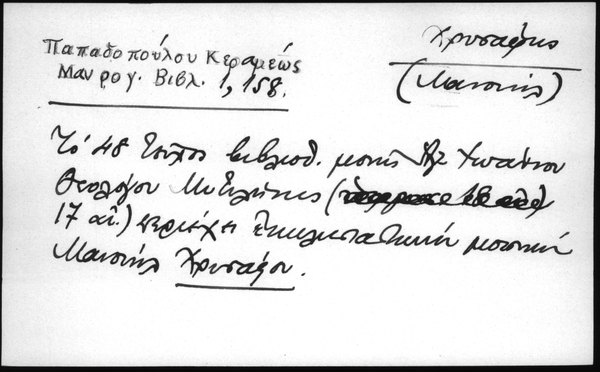 Παπαδοπούλου Κεραμέως
Μαυρογ. Βιβλ. 1, 158.
Χρυσάφης
(Μανουήλ)
Τό 48 βιβλιοθ. μονής Ἁγ. Ἰωάννου
Θεολόγου Μυτιλήνης (
17 αἰ.) περιέχει ἐκκλησιαστικήν μουσικήν
Μανουήλ Χρυσάφου.